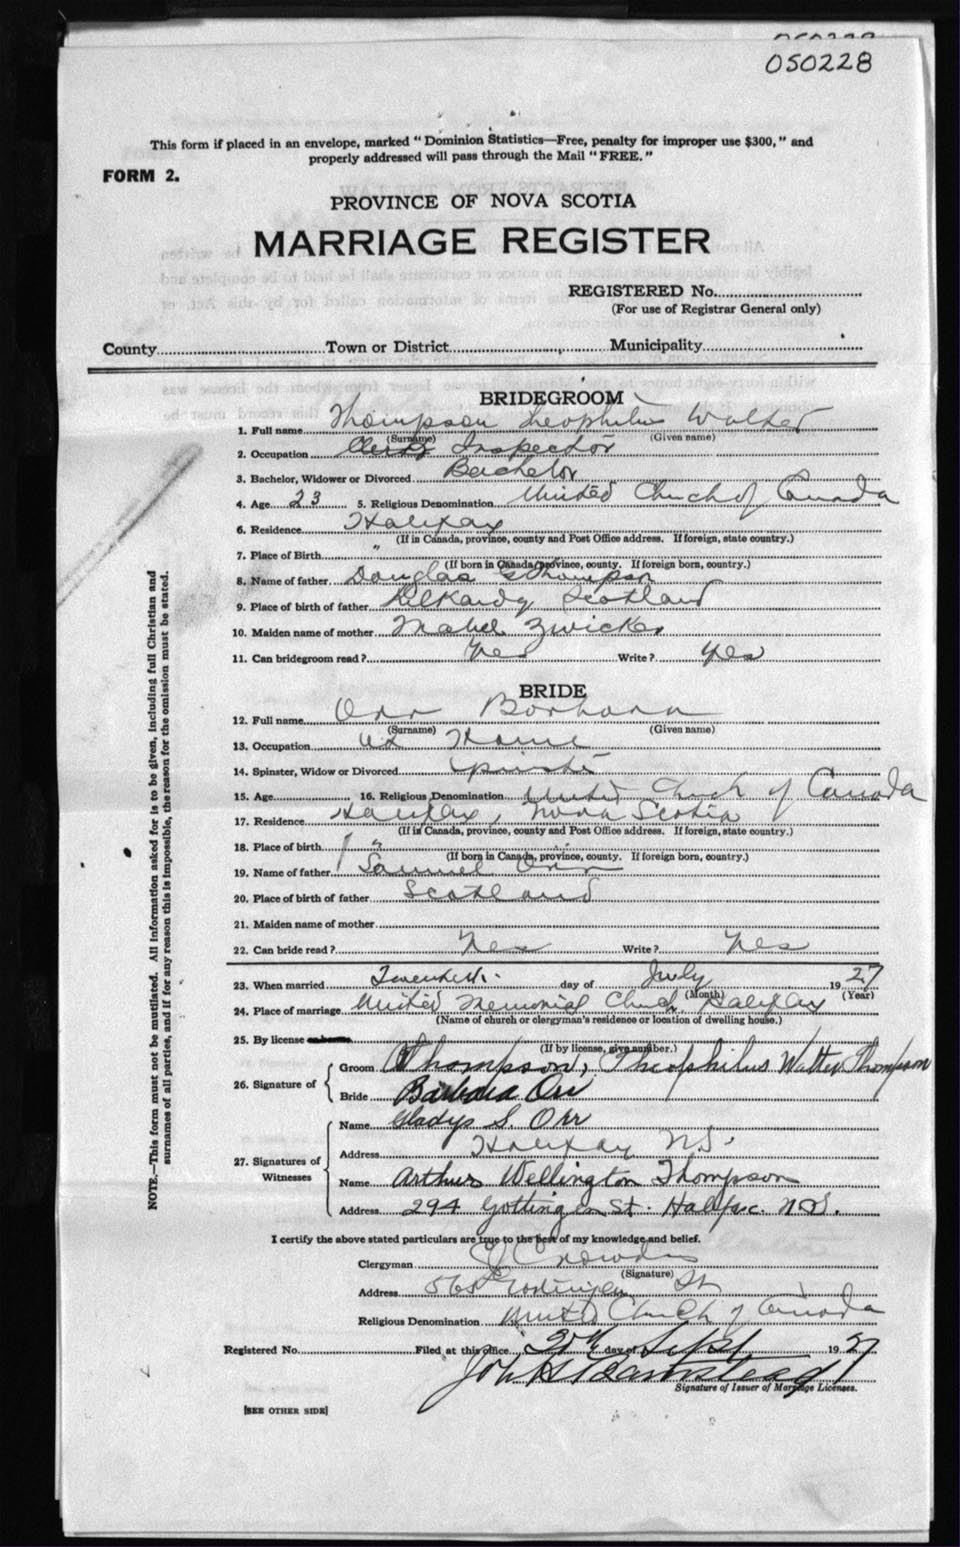 050228
This form if placed in an envelope, marked "Dominion Statistics—Free, penalty for improper use $300," and
properly addressed will pass through the Mail "FREE."
FORM 2.
PROVINCE OF NOVA SCOTIA
MARRIAGE REGISTER
REGISTERED No.
(For use of Registrar General only)
County Town or District Municipality
BRIDEGROOM
1. Full name Thompson Theophilus Walter
(Surname) (Given name)
2. Occupation Inspector
3. Bachelor, Widower or Divorced Bachelor
4. Age 23 5. Religious Denomination United Church of Canada
6. Residence Halifax
(If in Canada, province, county and Post Office address. If foreign, state country.)
7. Place of Birth "
(If born in Canada, province, county. If foreign born, country.)
8. Name of father Douglas G Thompson
9. Place of birth of father Scotland
10. Maiden name of mother Mabel Zwicker
11. Can bridegroom read? Yes Write? Yes
BRIDE
12. Full name Orr Barbara
(Surname) (Given name)
13. Occupation at Home
14. Spinster, Widow or Divorced Spinster
15. Age 16. Religious Denomination United Church of Canada
17. Residence Halifax, Nova Scotia
(If in Canada, province, county and Post Office address. If foreign, state country.)
18. Place of birth "
(If born in Canada, province, county. If foreign born, country.)
19. Name of father Samuel Orr
20. Place of birth of father Scotland
21. Maiden name of mother
22. Can bride read? Yes Write? Yes
23. When married Twentieth day of July 1927
(Month) (Year)
24. Place of marriage United Memorial Church Halifax
(Name of church or clergyman's residence or location of dwelling house.)
25. By license
(If by license, give number.)
26. Signature of
Groom Thompson, Theophilus Walter Thompson
Bride Barbara Orr
27. Signatures of Witnesses
Name Gladys S. Orr
Address Halifax N.S.
Name Arthur Wellington Thompson
Address 294 Gottingen St. Halifax. N.S.
I certify the above stated particulars are true to the best of my knowledge and belief.
Clergyman
(Signature)
Address Gottingen St
Religious Denomination United Church of Canada
Registered No. Filed at this office, day of Sept 1927
Signature of Issuer of Marriage Licenses.
[SEE OTHER SIDE]
NOTE.—This form must not be mutilated. All information asked for is to be given, including full Christian and
surnames of all parties, and if for any reason this is impossible, the reason for the omission must be stated.